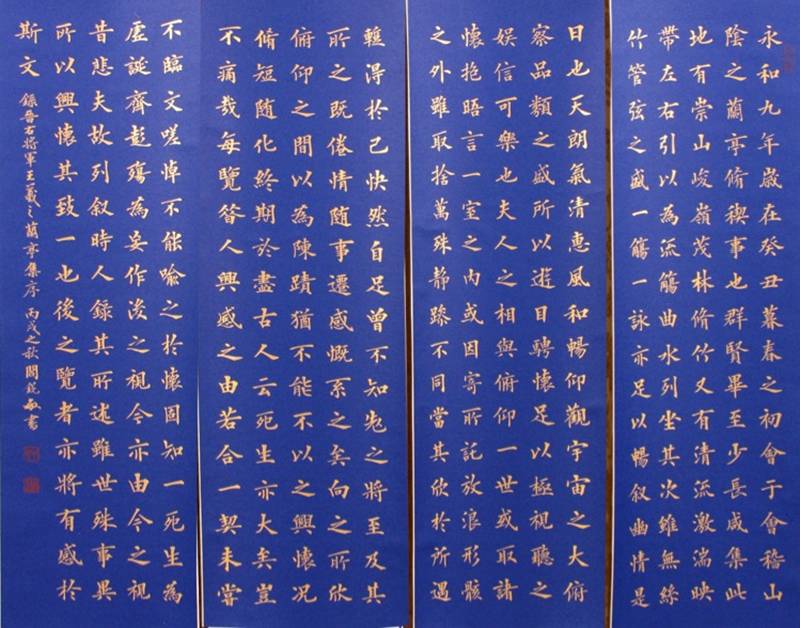 永和九年歲在癸丑暮春之初會于會稽山
陰之蘭亭脩禊事也群賢畢至少長咸集此
地有崇山峻嶺茂林脩竹又有清流激湍映
帶左右引以為流觴曲水列坐其次雖無絲
竹管弦之盛一觴一詠亦足以暢叙幽情是
日也天朗氣清惠風和暢仰觀宇宙之大俯
察品類之盛所以遊目騁懷足以極視聽之
娛信可樂也夫人之相與俯仰一世或取諸
懷抱晤言一室之內或因寄所託放浪形骸
之外雖取捨萬殊靜躁不同當其欣於所遇
輒得於己快然自足曾不知老之將至及其
所之既倦情随事遷感慨系之矣向之所欣
俯仰之間以為陳蹟猶不能不以之興懷况
脩短随化終期於盡古人云死生亦大矣豈
不痛哉每覽昔人興感之由若合一契未嘗
不臨文嗟悼不能喻之於懷固知一死生為
虛誕齊彭殤為妄作後之視今亦由今之視
昔悲夫故列叙時人錄其所述雖世殊事異
所以興懷其致一也後之覽者亦將有感於
斯文 錄晉右將軍王羲之蘭亭集序 丙戌之秋 書